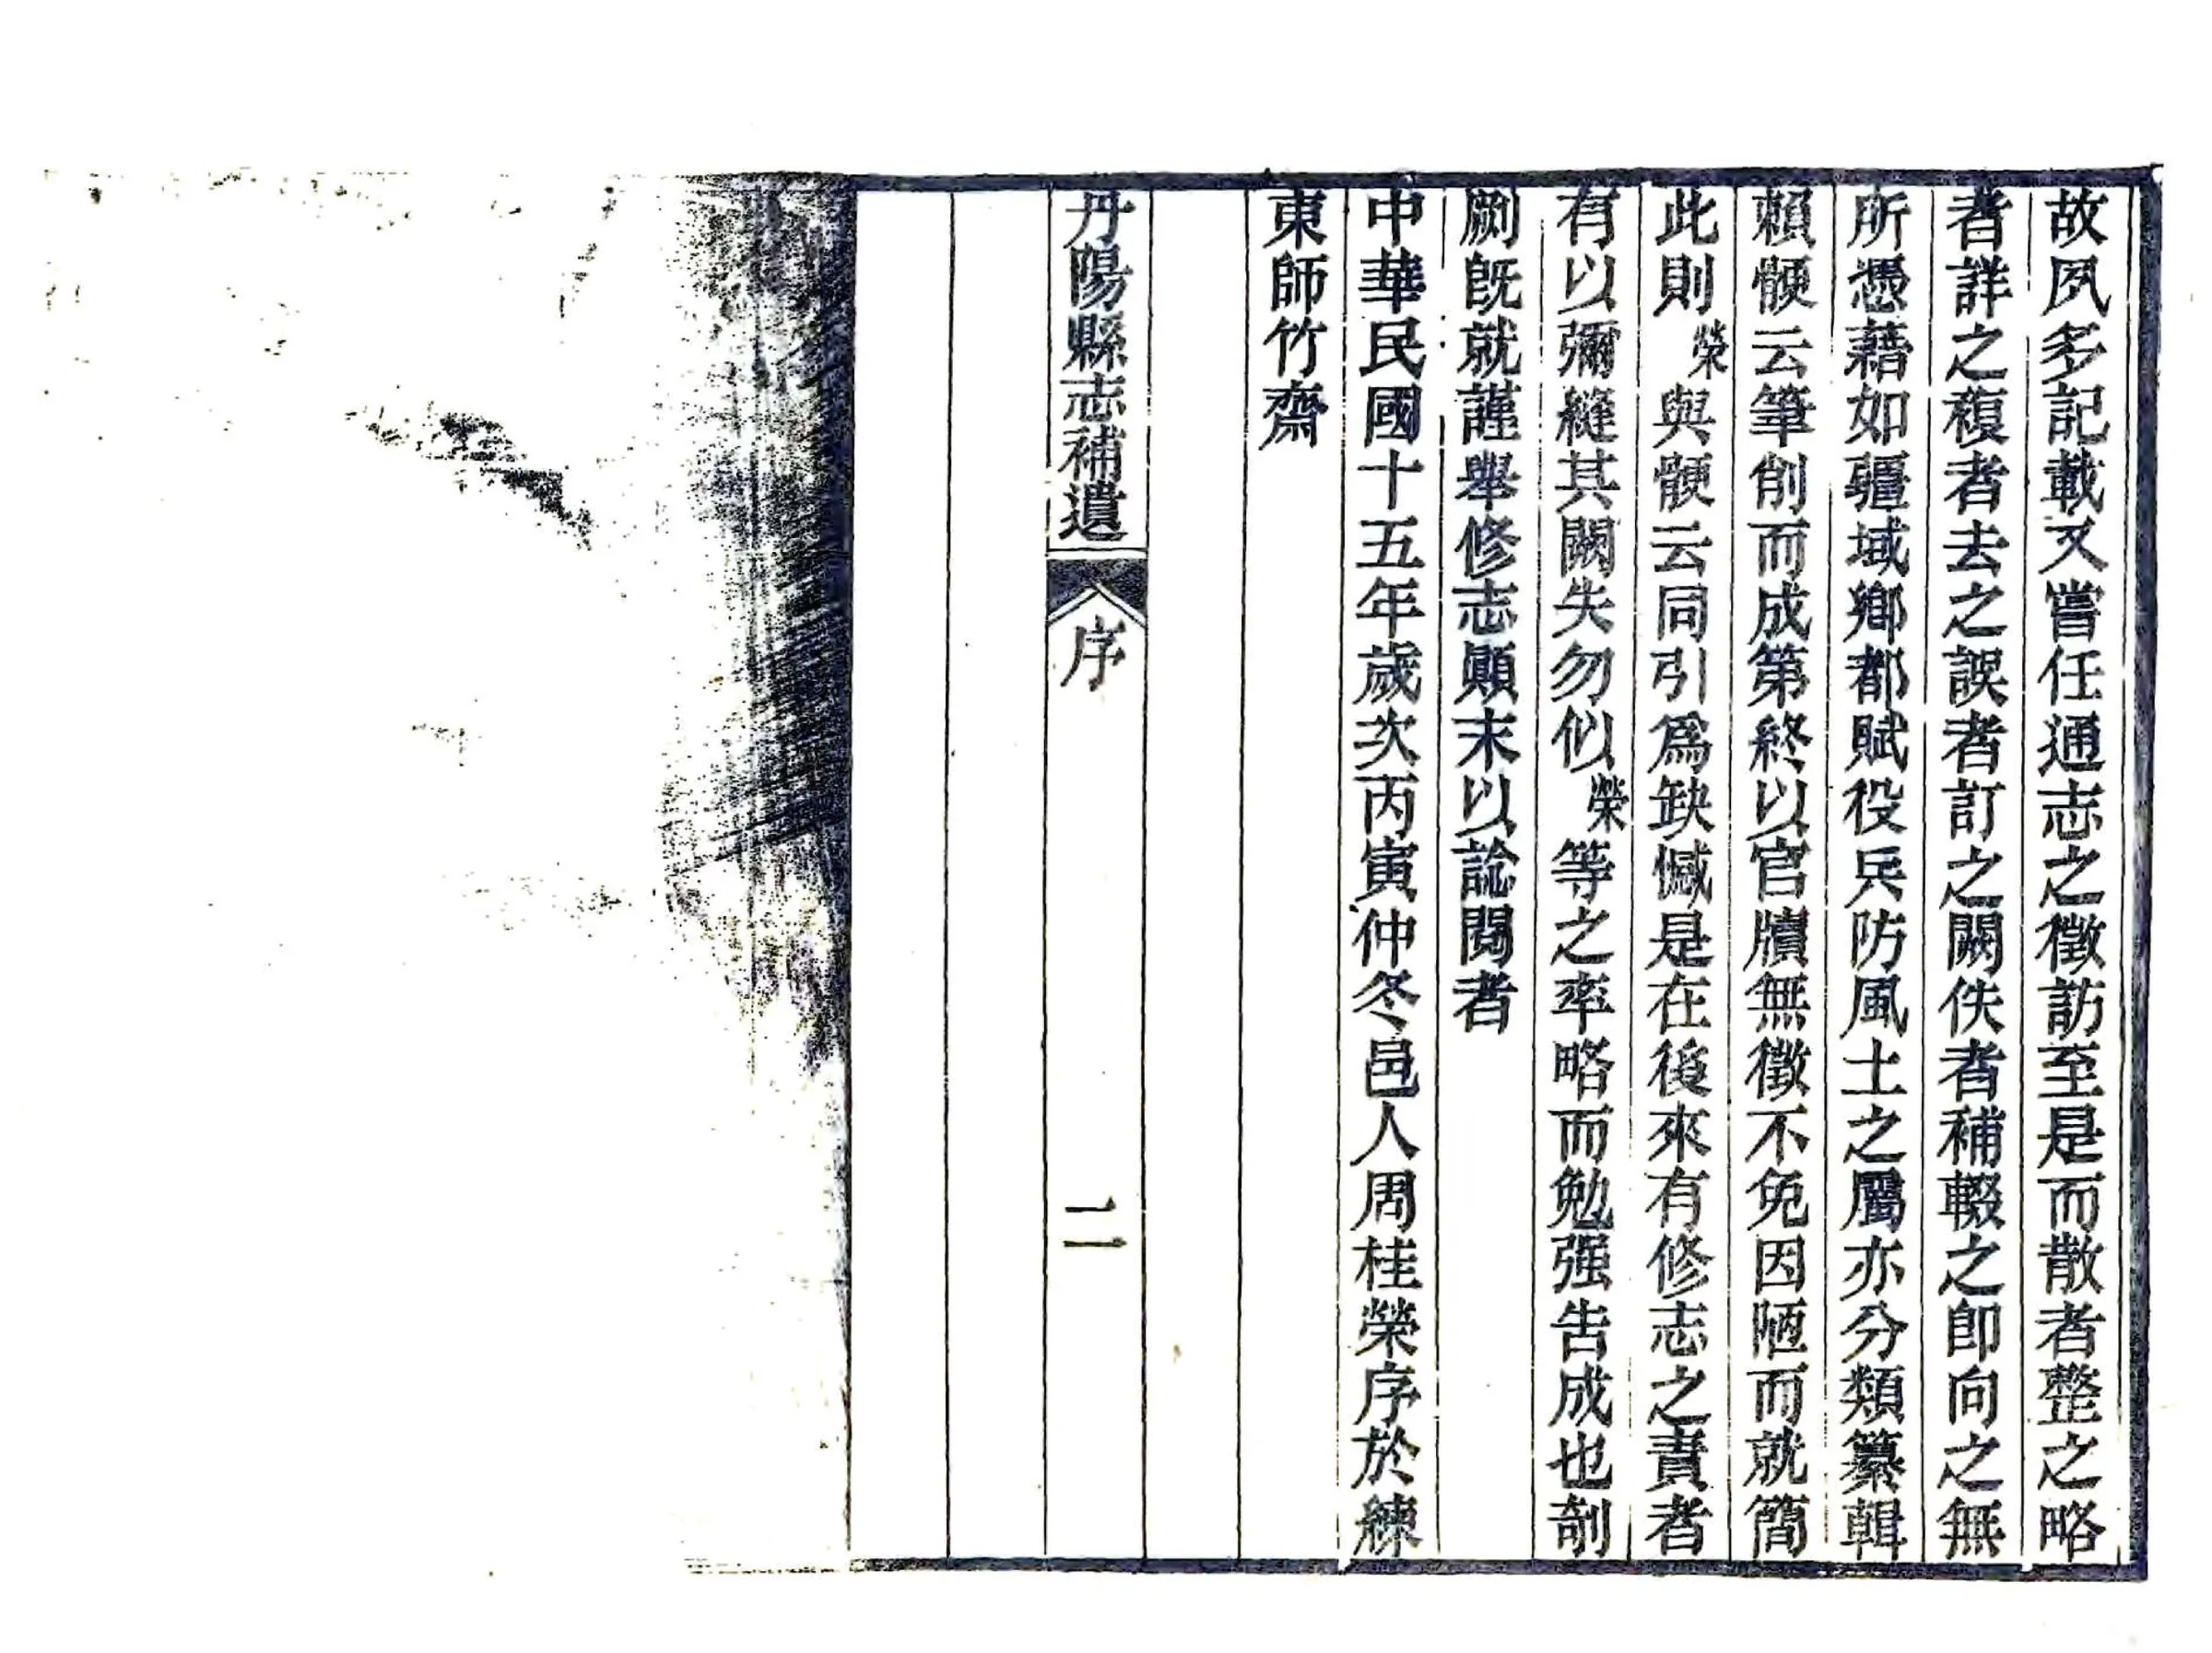 故夙多記載又嘗任通志之徵訪至是而散者整之略
者詳之複者去之誤者訂之闕佚者補輟之卽向之無
所憑藉如疆域鄉都賦役兵防風土之屬亦分類纂輯
賴骾云筆削而成第終以官牘無徵不免因陋而就簡
此則榮與骾云同引爲缺憾是在後來有修志之責者
有以彌縫其闕失勿似榮等之率略而勉强告成也剞
劂旣就謹舉修志顚末以諗閱者
中華民國十五年歲次丙寅仲冬邑人周桂榮序於練
東師竹齋
丹陽縣志補遺 序 二